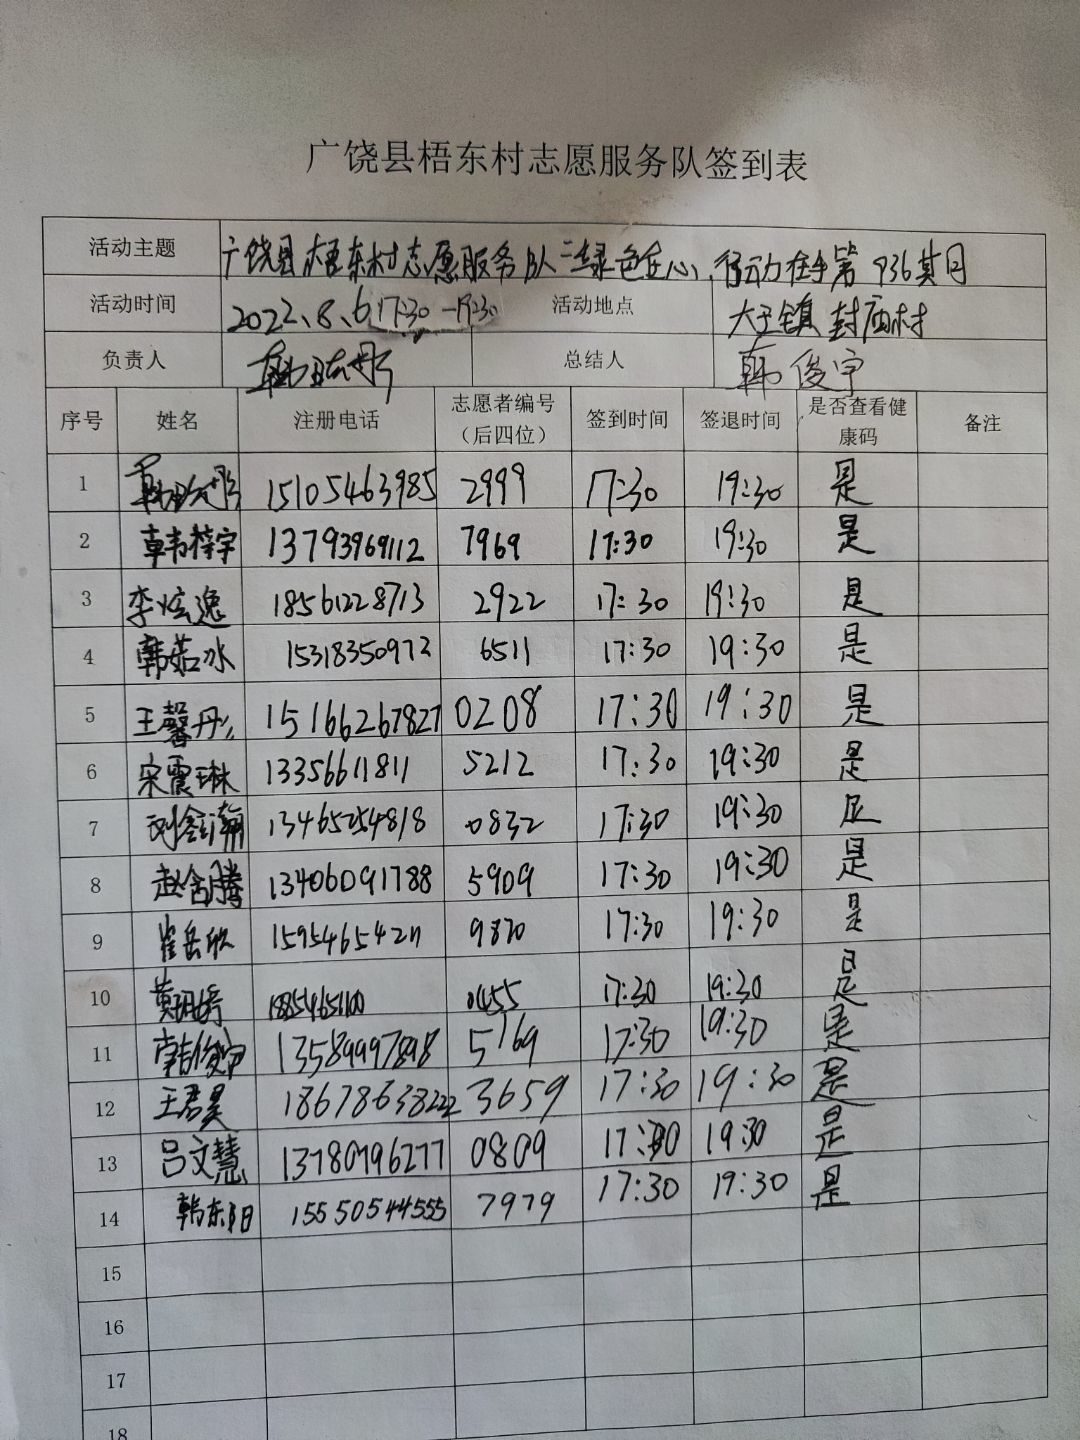 广饶县梧东村志愿服务队签到表
活动主题 广饶县梧东村志愿服务队"绿色在心,行动在手第936其目
活动时间 2022.8.6 17:30-19:30 活动地点 大王镇封庙村
负责人 总结人 韩俊宇
序号 姓名 注册电话 志愿者编号(后四位) 签到时间 签退时间 是否查看健康码 备注
1 15105463985 2999 17:30 19:30 是
2 13793969112 7969 17:30 19:30 是
3 李炫逸 18561228713 2922 17:30 19:30 是
4 韩茹冰 15318350972 6511 17:30 19:30 是
5 王馨彤 15166267827 0208 17:30 19:30 是
6 宋震琳 13356611811 5212 17:30 19:30 是
7 刘鑫瀚 13465254818 0832 17:30 19:30 是
8 13406091788 5909 17:30 19:30 是
9 崔岳欣 15954654211 9870 17:30 19:30 是
10 18854651100 0455 17:30 19:30 是
11 韩俊宇 13589997898 5169 17:30 19:30 是
12 王君昊 18678638222 3659 17:30 19:30 是
13 吕文慧 13780796277 0809 17:30 19:30 是
14 韩东阳 15550544555 7979 17:30 19:30 是
15
16
17
18